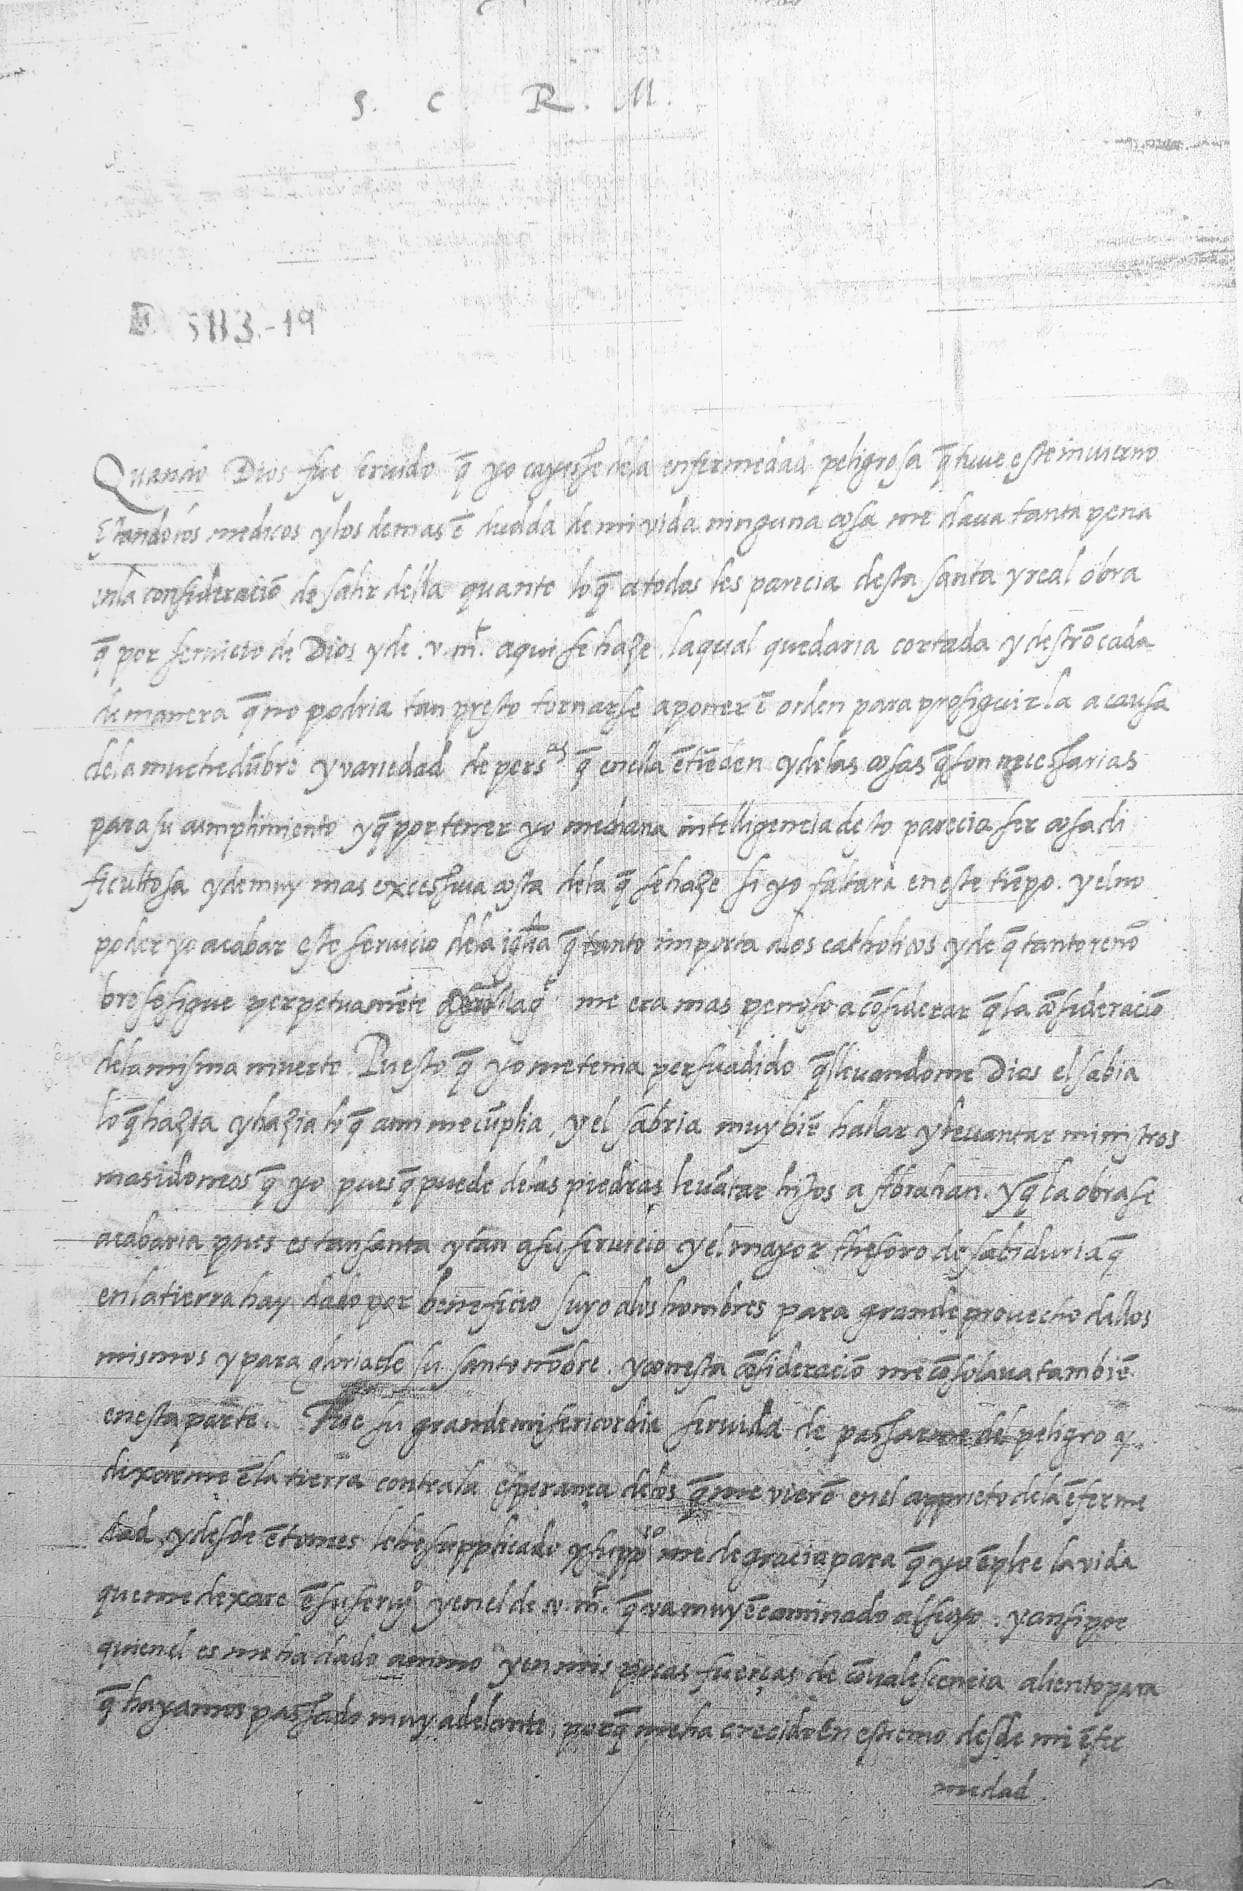 S. C. R. M.
5113.-19
Quando Dios fue seruido q̃ yo cayesse dela enfermedad peligrosa q̃ tuue este inuierno
Estando los medicos y los demas ẽ dudda de mi vida ninguna cosa me daua tanta pena
en la consideraciõ de salir della quanto lo q̃ a todos les parecia desta santa y real obra
q̃ por seruicio de Dios y de .v. m.ᵗ aqui se haze. la qual quedaria cortada y destrõcada
de manera q̃ no podria tan presto tornarse a poner ẽ orden para prosiguirla a causa
dela muchedũbre y variedad de persᵃˢ q̃ en ella ẽtiẽden y delas cosas q̃ son necessarias
para su cumplimiento y q̃ por tener yo mediana intelligencia desto parecia ser cosa di
ficultosa y de muy mas excessiua costa dela q̃ se haze si yo faltara en este tiẽpo. y el no
poder yo acabar este seruicio dela igl̃ia q̃ tanto importa alos catholicos y de q̃ tanto renõ
bre se sigue perpetuamẽte me era mas penoso a cõsiderar q̃ la cõsideraciõ
dela misma muerte. Puesto q̃ yo me tenia persuadido q̃ lleuandome Dios el sabia
lo q̃ hazia y hazia lo q̃ a mi me cũplia, y el sabria muy biẽ hallar y leuantar ministros
mas idoneos q̃ yo pues q̃ puede delas piedras leuãtar hijos a Abrahan. y q̃ la obra se
acabaria pues es tan santa y tan a su seruicio y el mayor thesoro de sabiduria q̃
en la tierra hay dado por beneficio suyo alos hombres para grande prouecho dellos
mismos y para gloria de su santo nõbre. y con esta cõsideraciõ me cõsolaua tambiẽ
en esta parte. Fue su grande misericordia seruida de passarme del peligro y
dexarme ẽ la tierra contra la esperança delos q̃ me vierõ en el apprieto dela ẽferme
dad y desde ẽtonces le he supplicado y suppᶜᵒ me de gracia para q̃ yo ẽplee la vida
que me dexare ẽ su seruᵒ y en el de .v. m.ᵗ q̃ va muy ẽcaminado al suyo. y ansi por
quien el es me ha dado animo y en mis pocas fuerças de cõualescencia aliento para
q̃ hayamos passado muy adelante, porq̃ me ha crecido en estremo desde mi ẽfer
medad